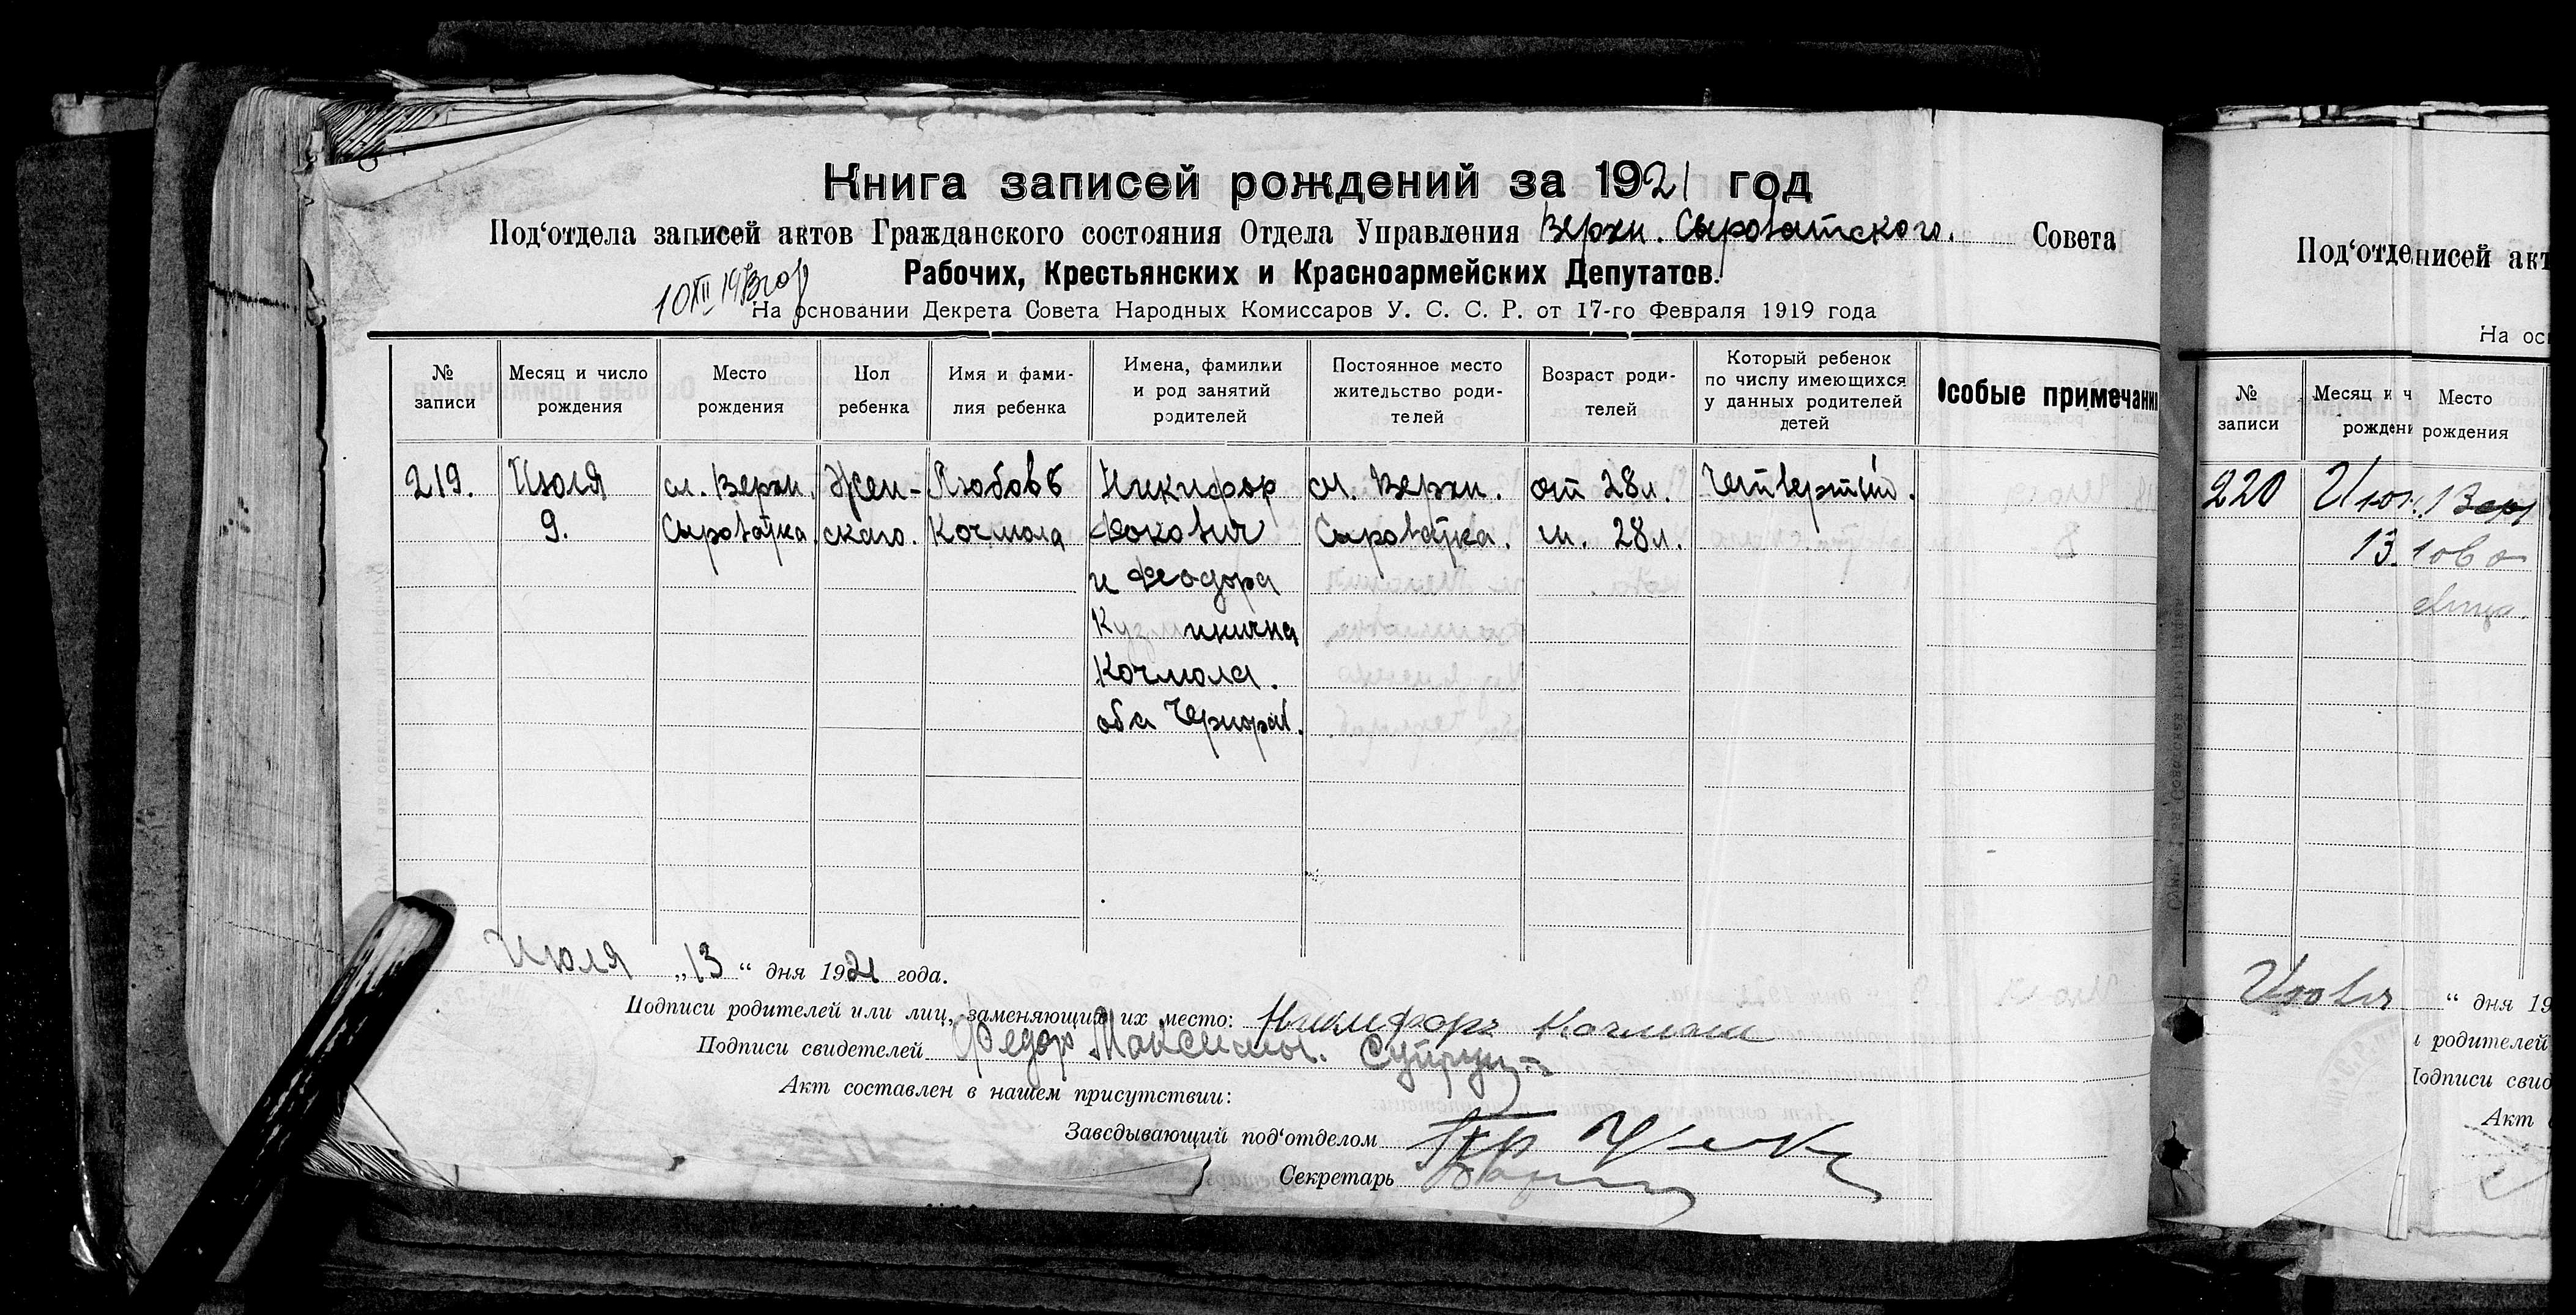 Книга записей рождений за 1921 год
Под‘отдела записей актов Гражданского состояния Отдела Управления Верхн. Сыроватского. Совета
Рабочих, Крестьянских и Красноармейских Депутатов.
10 XII
На основании Декрета Совета Народных Комиссаров У. С. С. Р. от 17-го Февраля 1919 года
№ записи
Месяц и число рождения
Место рождения
Пол ребенка
Имя и фами-
лия ребенка
Имена, фамилии
и род занятий
родителей
Постоянное место
жительство роди-
телей
Возраст роди-
телей
Который ребенок
по числу имеющихся
у данных родителей
детей
Особые примечани
219.
Июля
9.
сл. Верхн.
Сыроватка.
Жен-
скаго.
Любовь
Кочмола
Никифор
Фокович
и Феодора
Кузминична
Кочмола.
оба Чернораб.
сл. Верхн.
Сыроватка.
от 28л.
м. 28л.
Четвертый.
Июля „13“ дня 1921 года.
Подписи родителей или лиц, заменяющих их место: Никифоръ
Подписи свидетелей Федор Максимов. Супрун
Акт составлен в нашем присутствии:
Заведывающий под‘отделом
Секретарь
Под‘отде
писей акт
На ос
№ записи
Месяц и ч
рожден
Место
рождения
220
13.
“ дня 19
родителей
Подписи свид
Акт